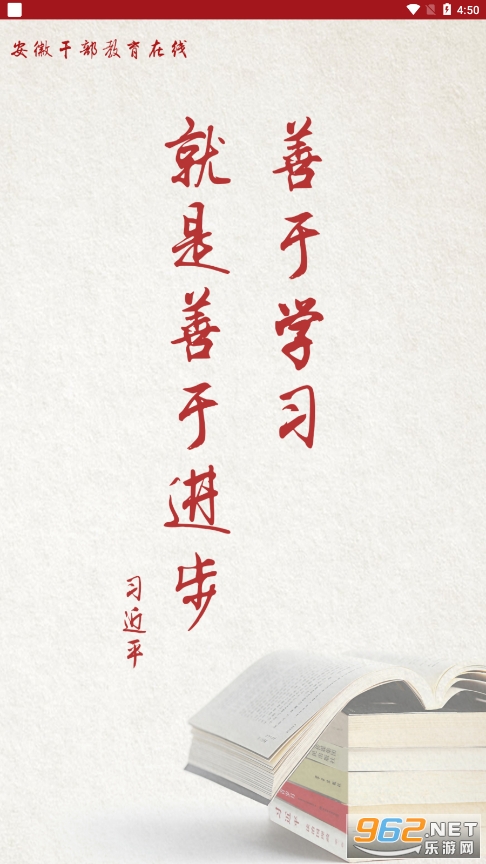 4:50
安徽干部教育在线
善于学习
就是善于进步
习近平
习近平
962.NET
乐游网